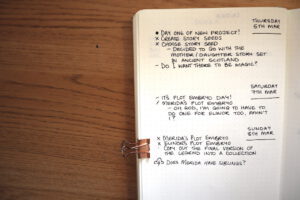 THURSDAY
5TH MAR
• DAY ONE OF NEW PROJECT!
× CREATE STORY SEEDS
× CHOOSE STORY SEED
- DECIDED TO GO WITH THE
MOTHER / DAUGHTER STORY SET
IN ANCIENT SCOTLAND
- DO I WANT THERE TO BE MAGIC?
SATURDAY
7TH MAR
- IT'S PLOT EMBRYO DAY!
/ MERIDA'S PLOT EMBRYO
- OH GOD, I'M GOING TO HAVE TO
DO ONE FOR ELINOR TOO, AREN'T
I?
SUNDAY
8TH MAR
× MERIDA'S PLOT EMBRYO
× ELINOR'S PLOT EMBRYO
COPY OUT THE FINAL VERSION OF
THE LEGEND INTO A COLLECTION
DOES MERIDA HAVE SIBLINGS?